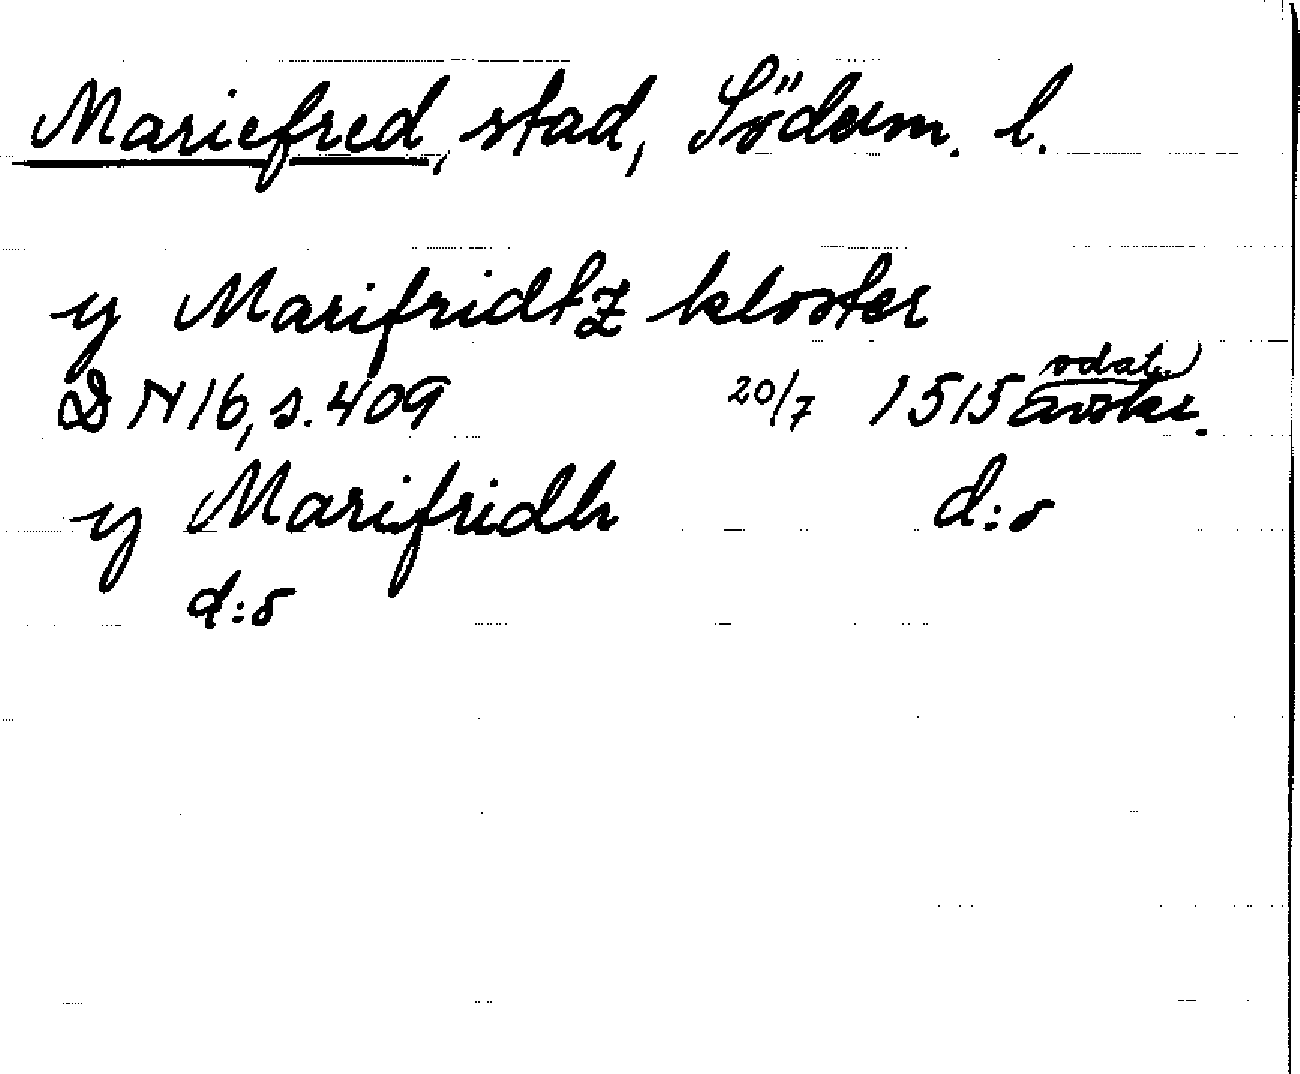 Mariefred, stad, Söderm. l.
y Marifridtz kloster
DN 16, s. 409 20/7 1515 odat. avskr.
y Marifridh d:o
d:o